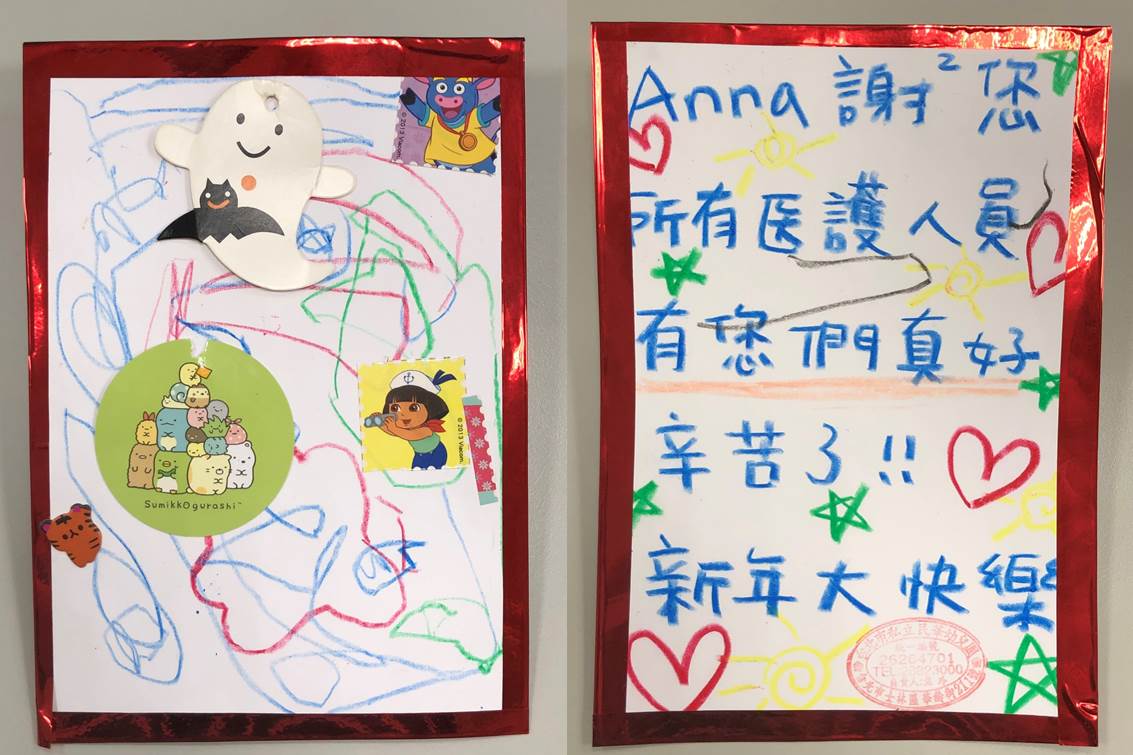 © 2013 Viacom
© 2013 Viacom
Sumikkogurashi™
Anna 謝² 您
所有医護人員
有您們真好
辛苦了!!
新年大快樂
26264701